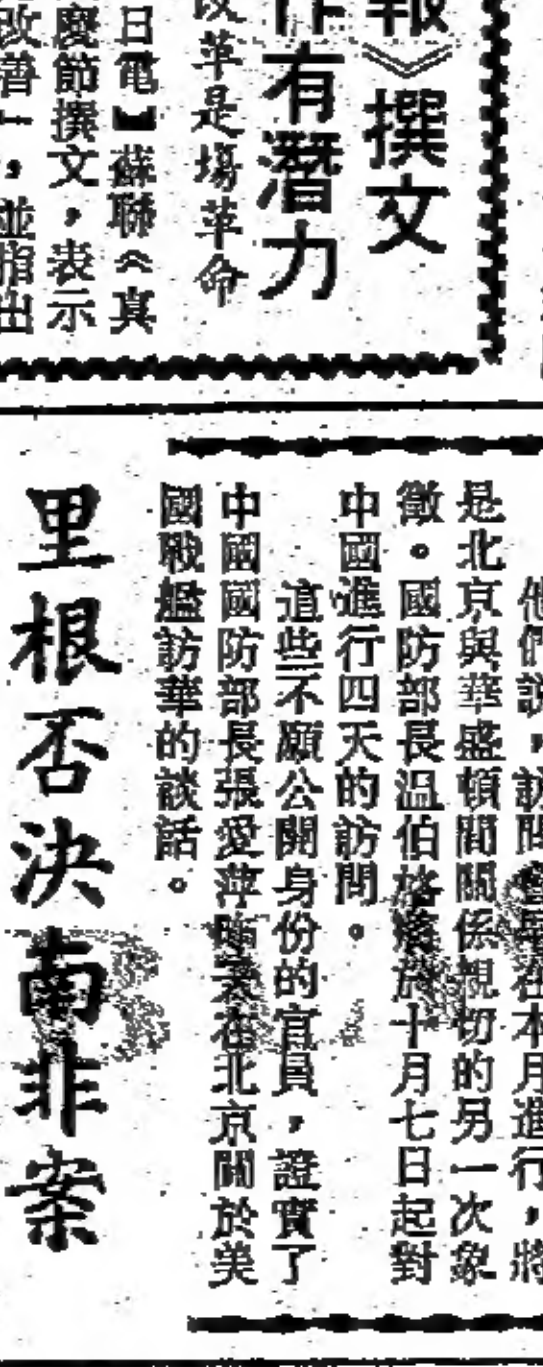 報》撰文
作有潛力
改革是場革命
日電】蘇聯《真
慶節撰文，表示
改善」，並指出
他們說，訪問
在本月進行，將
是北京與華盛頓間關係親切的另一次象
徵。國防部長温伯格
於十月七日起對
中國進行四天的訪問。
這些不願公開身份的官員，證實了
中國國防部長張愛萍
在北京關於美
國戰艦訪華的談話。
里根否決南非案